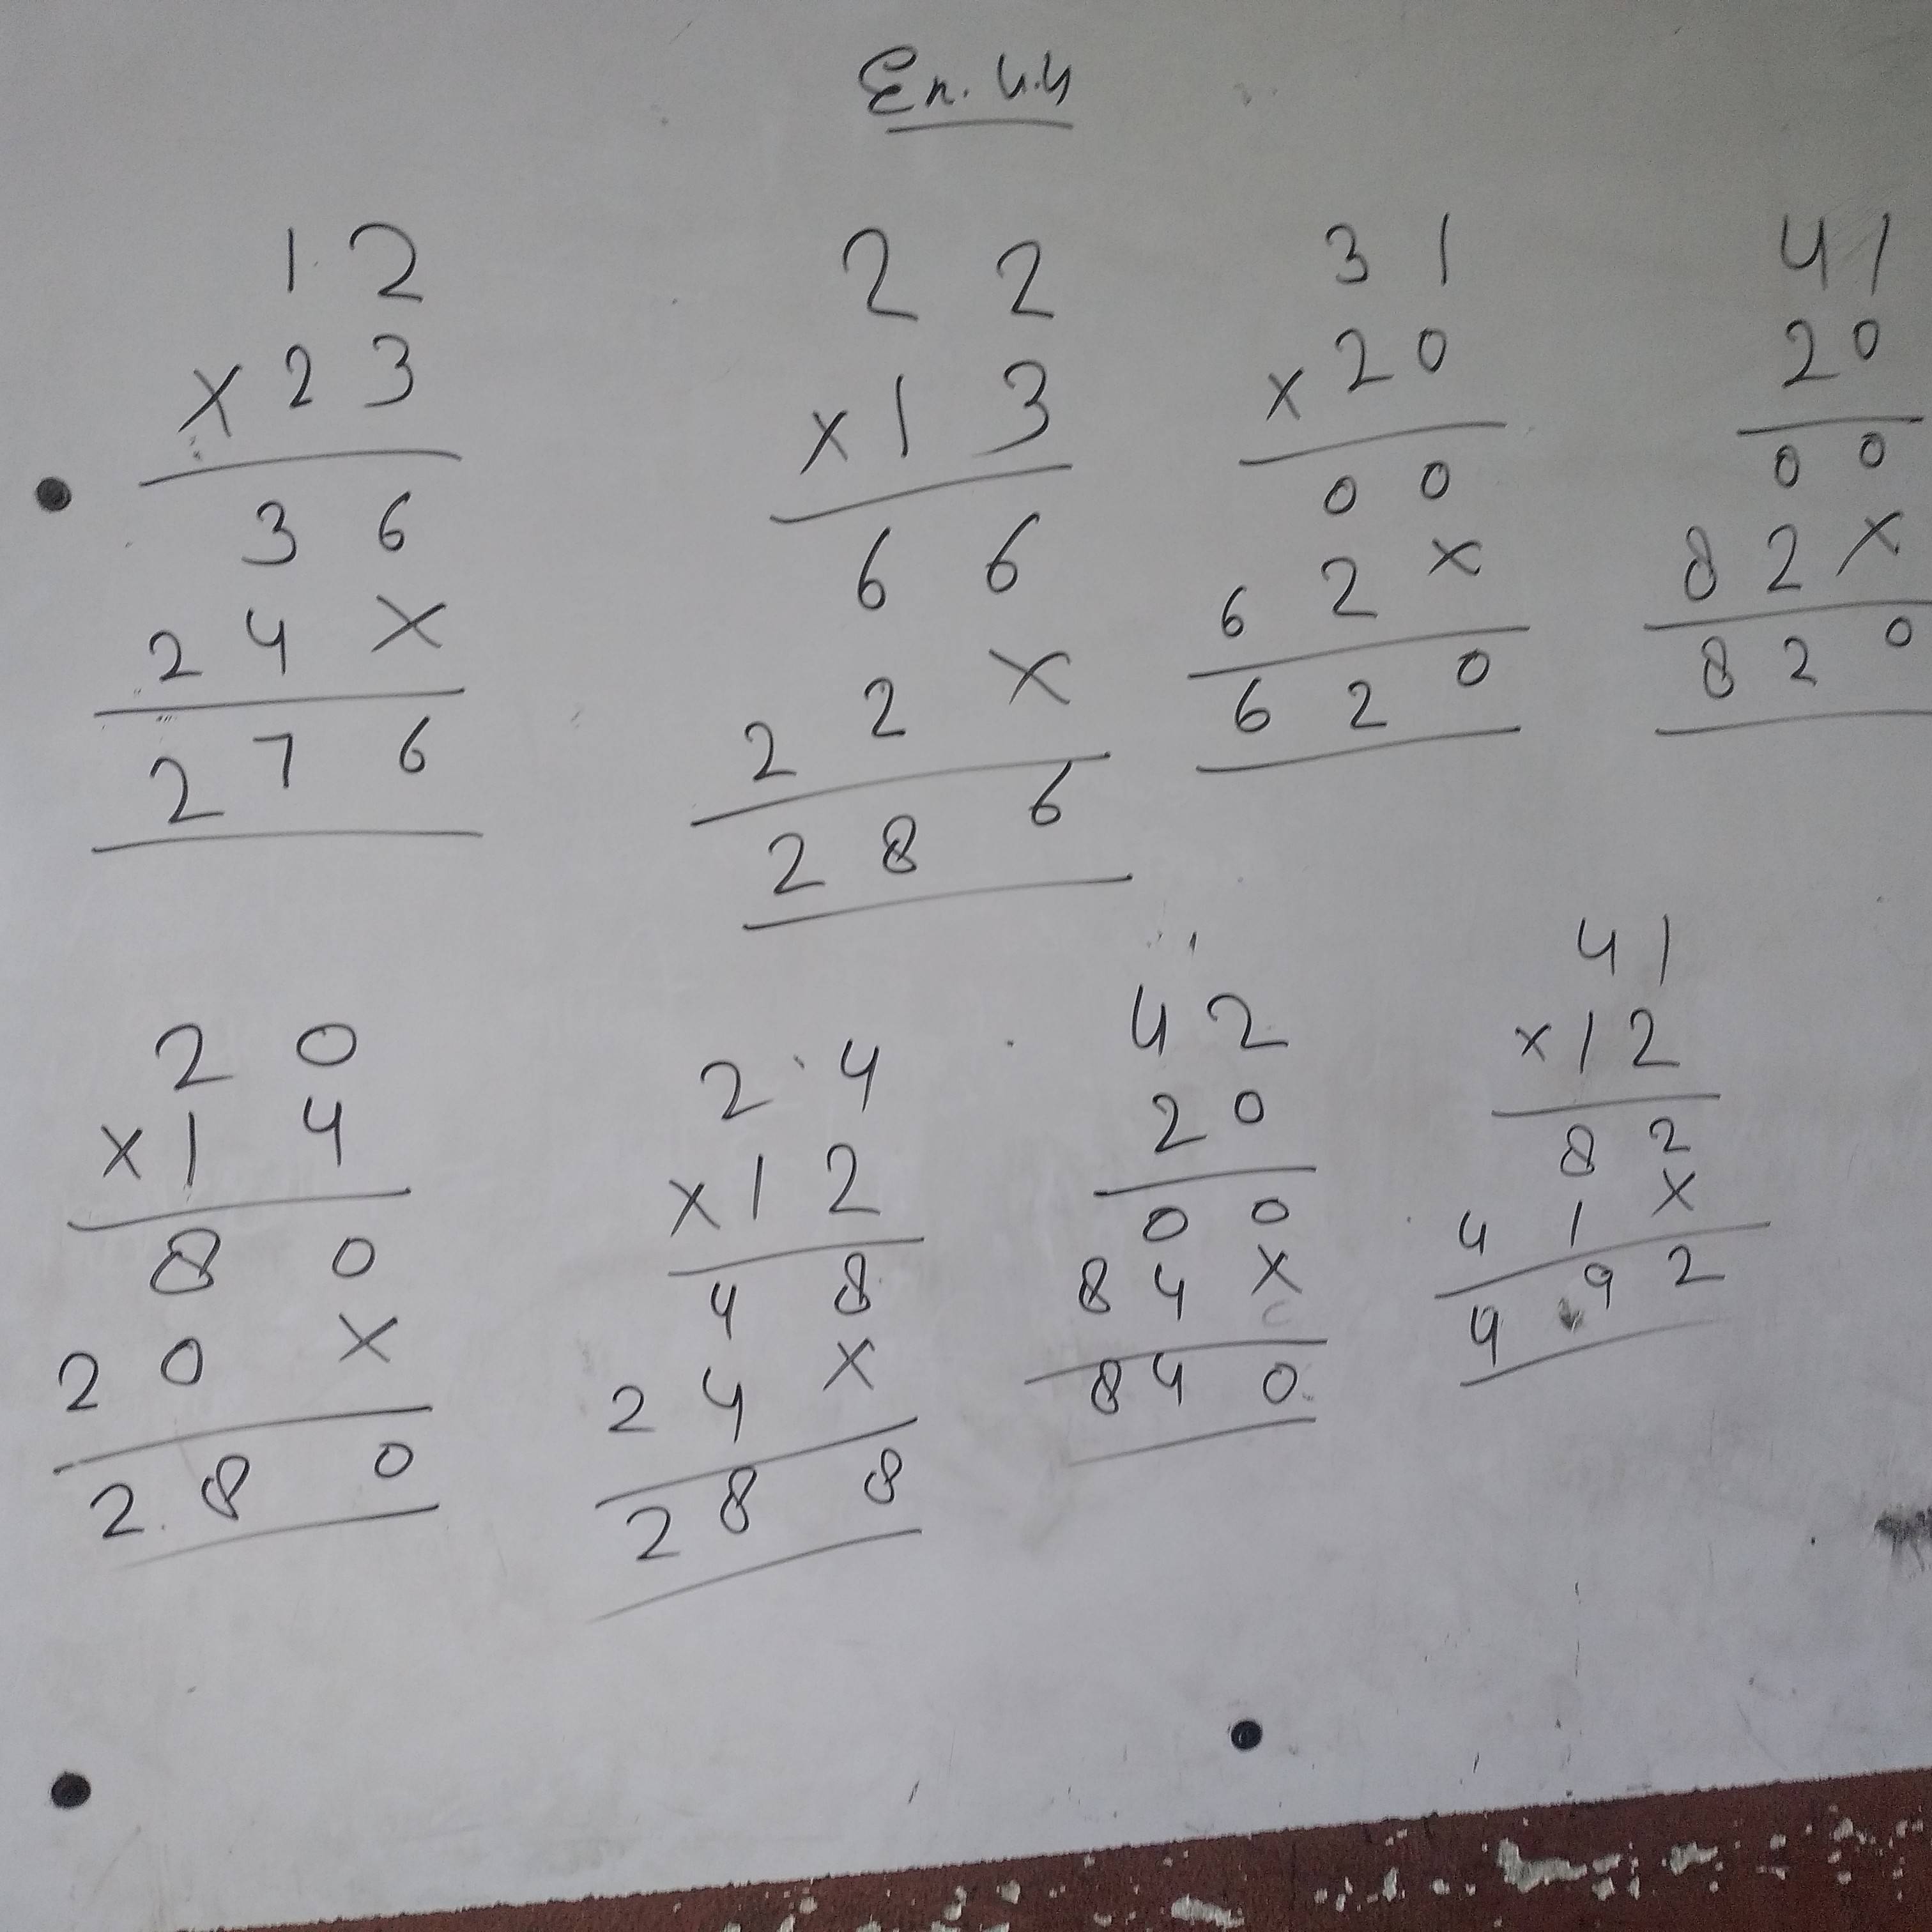 Ex. 4.4
12
×23
36
24×
276
22
×13
66
22×
286
31
×20
00
62×
620
41
20
00
82×
820
20
×14
80
20×
280
24
×12
48
24×
288
42
20
00
84×
840
41
×12
82
41×
492